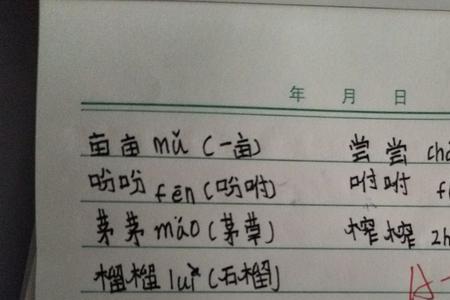 年 月 日
亩亩 mǔ (一亩) 尝尝 chá
吩吩 fēn (吩咐) 咐咐 f
茅茅 máo (茅草) 榨榨 zh
榴榴 (石榴)